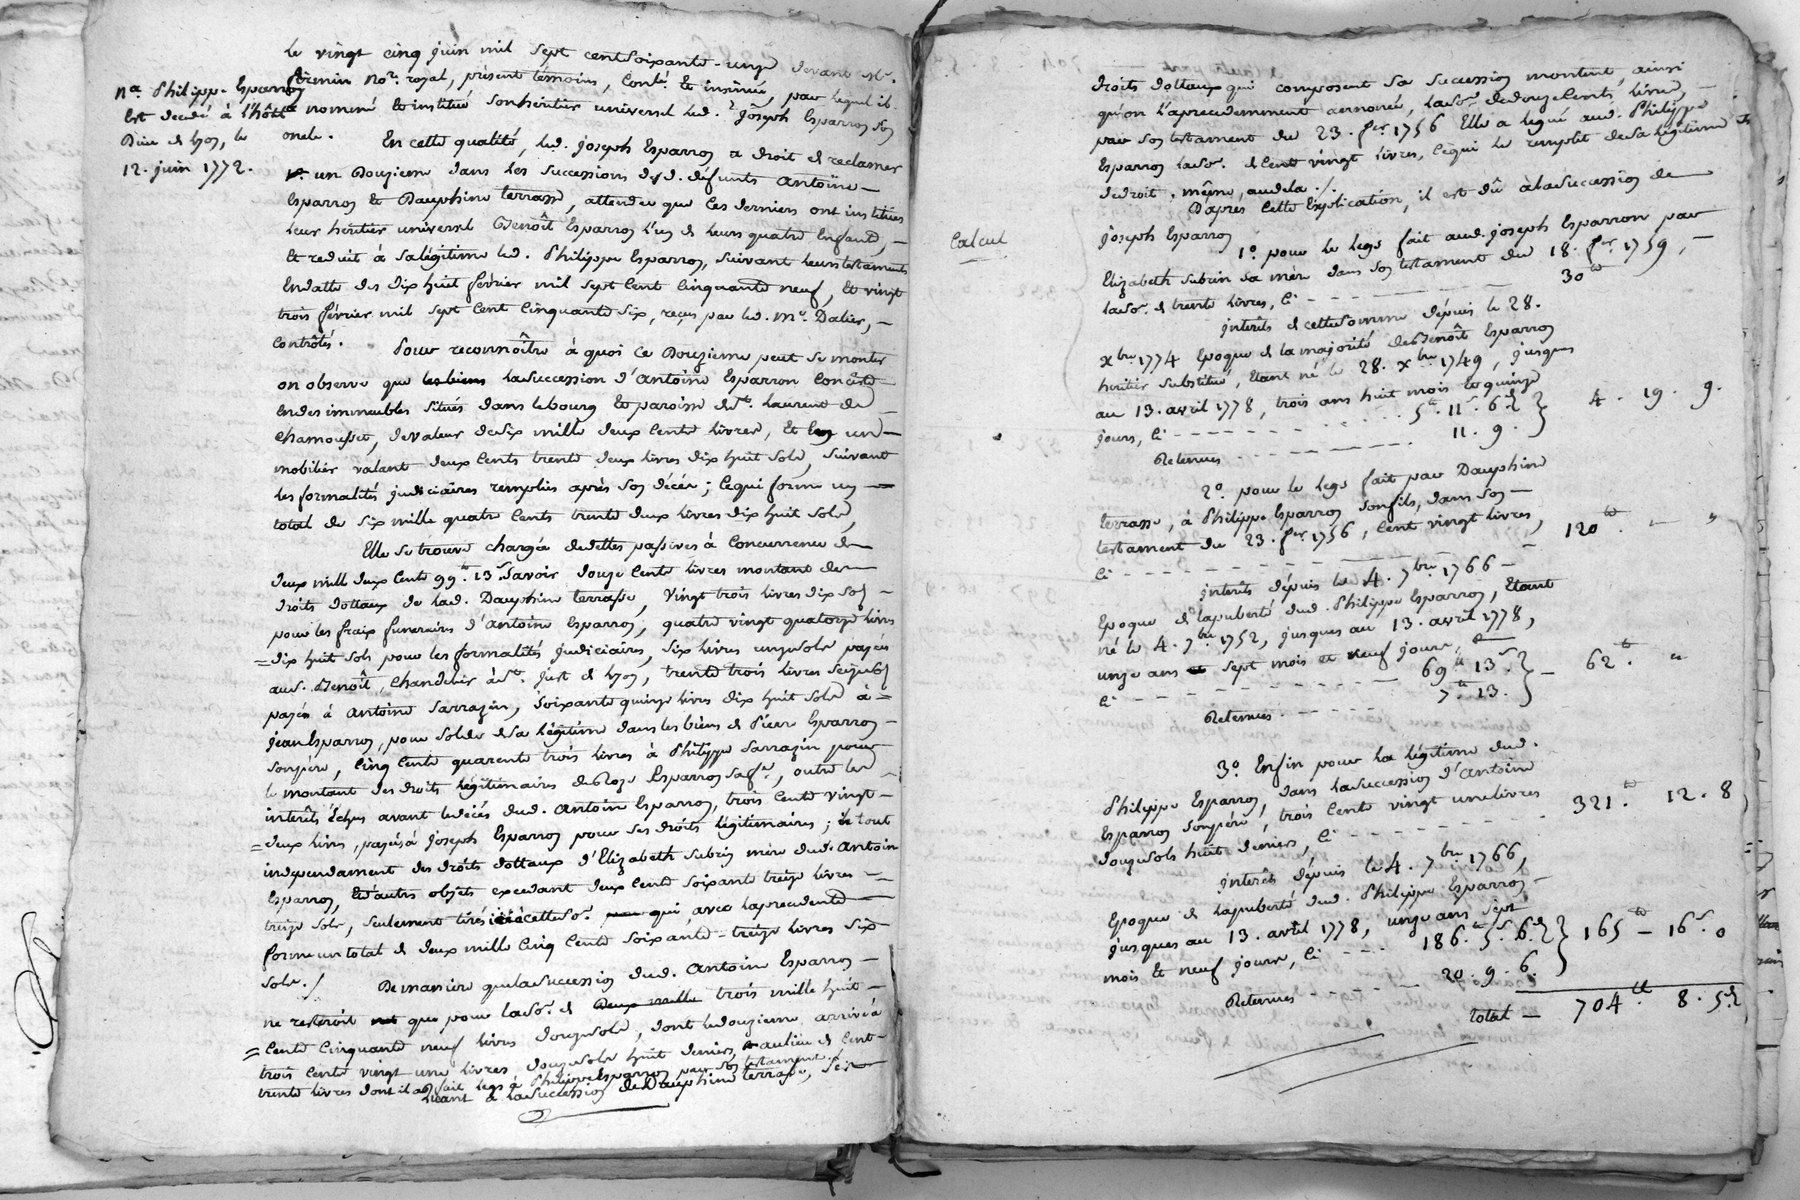 le vingt cinq juin mil sept cent soixante-onze devant Me.
Not. royal, présent témoins, Conlé. et insinué, par lequel il
a nommé et institué son heritier universel led. Sr. Joseph Esparron son
oncle.
na. Philippe Esparron
Est decedé à l'hôtel
Dieu de Lyon, le
12. juin 1772.
En cette qualité, led. Joseph Esparron a droit de reclamer
un Douzieme dans les successions desd. défunts Antoine
Esparron et Dauphine terrasse, attendu que ces derniers ont institués
leur héritier universel Benoît Esparron l'un de leurs quatre Enfants,
Et reduit à sa légitime led. Philippe Esparron, suivant leurs testaments
En datte des dix huit février mil sept cent cinquante neuf, Et vingt
trois février mil sept cent cinquante six, reçus par led. Me. Dalier,
Contrôlés.
Pour reconnoître à quoi ce Douzieme peut se monter
on observe que les biens la succession d'Antoine Esparron Consiste
En des immeubles situés dans le bourg Et paroisse de St. Laurent de
Chamousset, de valeur de six mille deux cents livres, Et en un
mobilier valant deux cents trente deux livres dix huit sols, suivant
les formalités judiciaires remplies après son décés; ce qui forme un
total de six mille quatre cents trente deux livres dix huit sols,
Elle se trouve chargée de dettes passives à Concurrence de
deux mille deux cents 99 tt. 13 s. savoir douze cents livres montant des
droits dottaux de lad. Dauphine terrasse, Vingt trois livres dix sols
pour les fraix funeraires d'Antoine Esparron, quatre vingt quatorze livres
= dix huit sols pour les formalités judiciaires, six livres onze sols payés
aud. Benoît, Chandelier à St. Just de Lyon, trente trois livres seize sols
payés à Antoine Sarrazin, soixante quinze livres dix huit sols à
Jean Esparron, pour solde de sa légitime dans les biens de Pierre Esparron
son père, Cinq cents quarante trois livres à Philippe Sarrazin pour
le montant des droits légitimaires de Roze Esparron sa fe., outre les
intérêts échus avant le décés dud. Antoine Esparron, trois cents vingt
= deux livres, payés à Joseph Esparron pour ses droits légitimaires; le tout
independament des droits dottaux d'Elizabeth Subrin mère dud. Antoine
Esparron, Et d'autres objets excedant deux cents soixante treize livres
treize sols, seulement tirés ici à cette so. qui, avec la precedente
forme un total de deux mille cinq cents soixante-treize livres six
sols./.
De maniere que la succession dud. Antoine Esparron
ne resteroit que pour la so. de Deux mille trois mille huit
= cents cinquante neuf livres douze sols, dont le douzieme arrive à
trois cents vingt une livres douze sols huit deniers, au lieu de cent
trente livres dont il a fait legs à Philippe Esparron par son testament.
Quant à la succession de Dauphine terrasse, Ses
droits dottaux qui composent sa succession montent, ainsi
qu'on l'a precedemment annoncé, la so. de douze cents livres,
par son testament du 23. fer. 1756 Elle a legué aud. Philippe
Esparron la so. de cent vingt livres, ce qui le remplit de sa légitime
de droit, même, au dela ./.
D'après cette Explication, il est dû à la succession de
Joseph Esparron
Calcul
1o. pour le legs fait aud. Joseph Esparron par
Elizabeth Subrin sa mère dans son testament du 18. fer. 1759,
la so. de trente livres, ci - - - - 30 tt
intérêts de cette somme depuis le 28.
Xbre 1774 Epoque de la majorité de Benoît Esparron
heritier substitué, Etant né le 28. Xbre 1749, jusques
au 13. avril 1778, trois ans huit mois et quinze
jours, ci - - - - 5 tt. 11 s. 6 d } 4. 19. 9.
Retenues - - - - 11. 9.
2o. pour le legs fait par Dauphine
terrasse, à Philippe Esparron son fils, dans son
testament du 23. fer. 1756, Cent vingt livres,
ci - - - - 120 tt. - "
intérêts depuis le 4. 7bre 1766
Epoque de la puberté dud. Philippe Esparron, Etant
né le 4. 7bre 1752, jusques au 13. avril 1778,
onze ans sept mois et neuf jours,
ci - - - - 69 tt 13 s. } - 62 tt. "
Retenues - - - - 7 tt 13.
3o. Enfin pour la légitime dud.
Philippe Esparron, dans la succession d'Antoine
Esparron son père, trois cents vingt une livres
douze sols huit deniers, ci - - - - 321 tt. 12. 8
intérêts depuis le 4. 7bre 1766,
Epoque de la puberté dud. Philippe Esparron
jusques au 13. avril 1778, onze ans sept
mois Et neuf jours, ci - - - 186 tt. 5 s. 6 d } 165 tt - 16 s. 0
Retenues - - - - 20. 9. 6.
total - 704 tt 8. 5 d